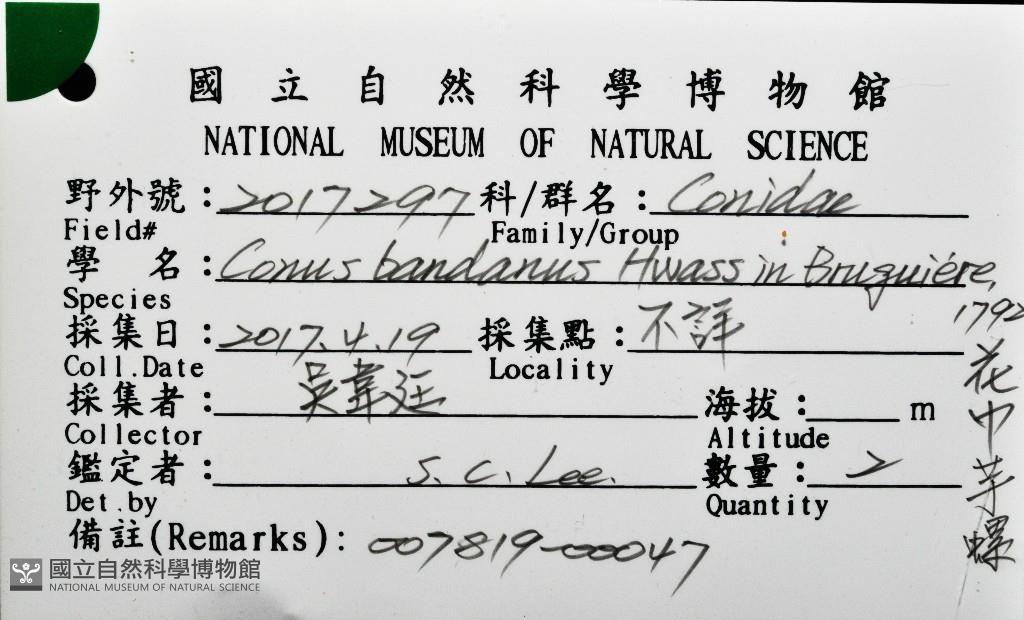 國立自然科學博物館
NATIONAL MUSEUM OF NATURAL SCIENCE
野外號：2017297 科/群名：Conidae
Field# Family/Group
學名：Conus bandanus Hwass in Bruguiére, 1792
Species
採集日：2017.4.19 採集點：不詳
Coll.Date Locality
採集者：吳韋廷 海拔： m
Collector Altitude
鑑定者：S. C. Lee. 數量：2
Det.by Quantity
備註(Remarks): 007819-00047
花巾芋螺
國立自然科學博物館
NATIONAL MUSEUM OF NATURAL SCIENCE